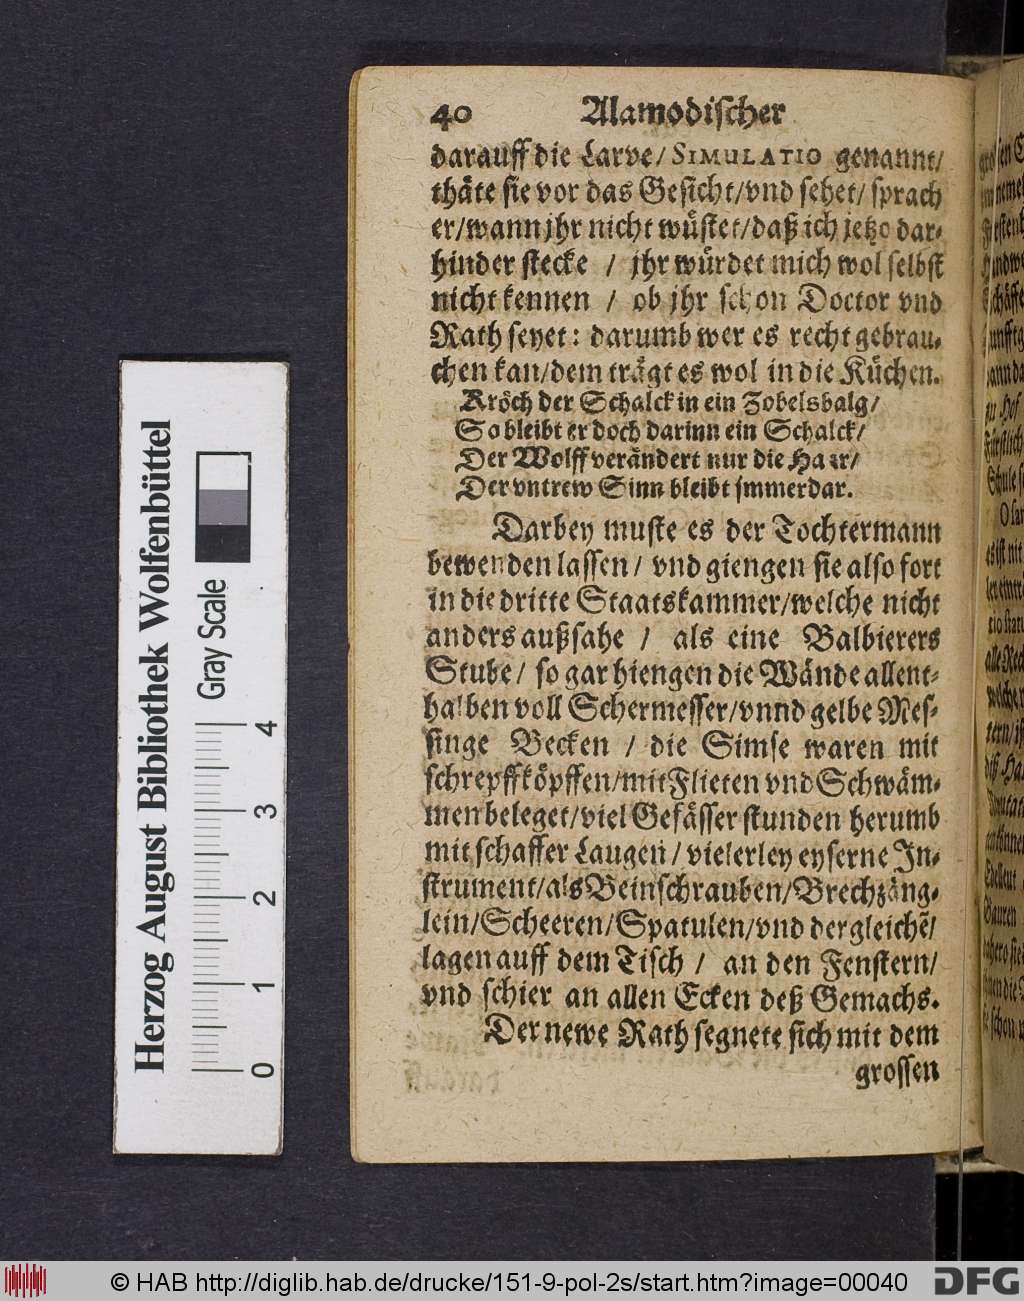 40 Alamodischer
darauff die Larve/ SIMULATIO genannt/
thäte sie vor das Gesicht/vnd sehet/ sprach
er/wann jhr nicht wüstet/daß ich jetzo dar-
hinder stecke / jhr würdet mich wol selbst
nicht kennen / ob jhr schon Doctor vnd
Rath seyet: darumb wer es recht gebrau-
chen kan/dem trägt es wol in die Küchen.
Kröch der Schalck in ein Zobelsbalg/
So bleibt er doch darinn ein Schalck/
Der Wolff verändert nur die Haar/
Der vntrew Sinn bleibt jmmerdar.
Darbey muste es der Tochtermann
bewenden lassen/ vnd giengen sie also fort
in die dritte Staatskammer/welche nicht
anders außsahe / als eine Balbierers
Stube/ so gar hiengen die Wände allent-
halben voll Schermesser/vnnd gelbe Mes-
singe Becken / die Simse waren mit
schrepffköpffen/mit Flieten vnd Schwäm-
men beleget/viel Gefässer stunden herumb
mit schaffer Laugen/ vielerley eyserne In-
strument/als Beinschrauben/Brechzäng-
lein/Scheeren/Spatulen/vnd dergleichẽ/
lagen auff dem Tisch / an den Fenstern/
vnd schier an allen Ecken deß Gemachs.
Der newe Rath segnete sich mit dem
grossen
Herzog August Bibliothek Wolfenbüttel
Gray Scale
0 1 2 3 4
© HAB http://diglib.hab.de/drucke/151-9-pol-2s/start.htm?image=00040
DFG